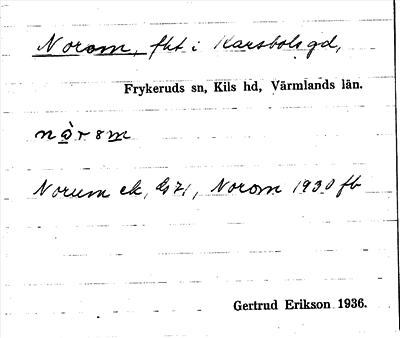 Norom, fht i Karsbols gd,
Frykeruds sn, Kils hd, Värmlands län.
nòrom
Norum ek, Norom 1930 fb
Gertrud Erikson 1936.